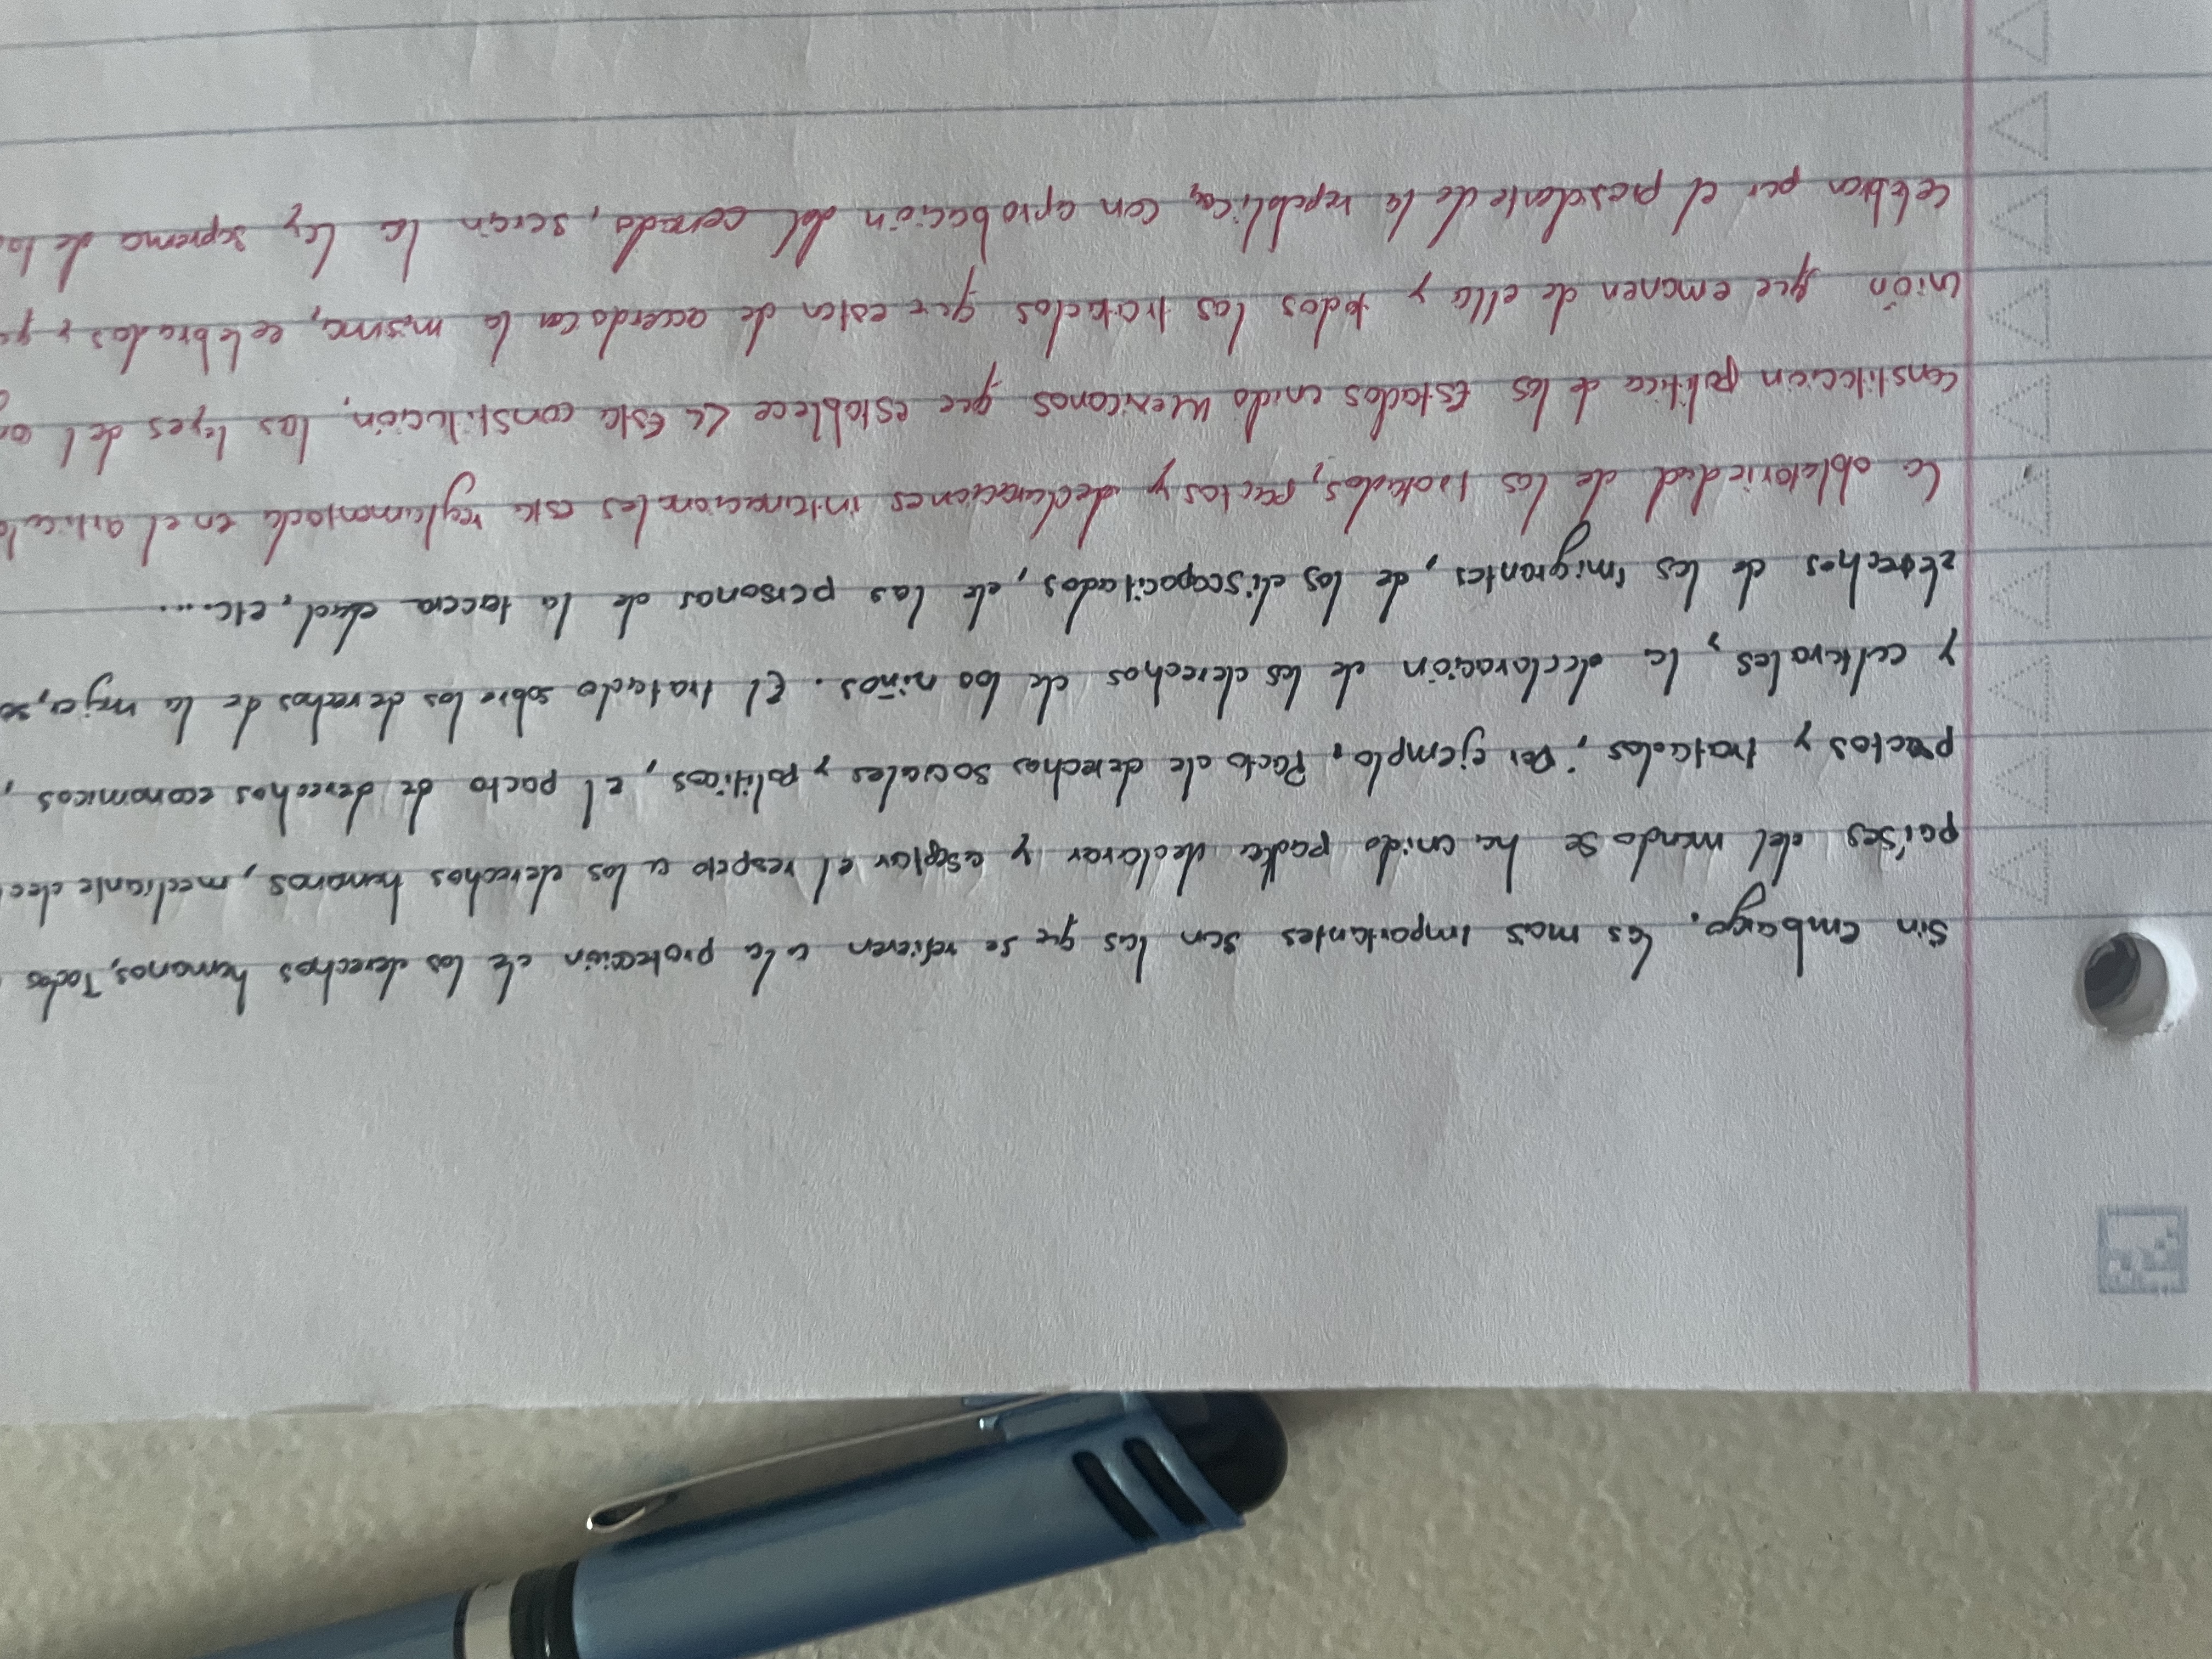 Sin embargo. Las mas importantes son las que se refieren a la protección de los derechos humanos, Todos
países del mundo se ha unido para declarar y aseptar el respeto a los derechos humanos, mediante dec
pactos y tratados, Por ejemplo, Pacto de derechos sociales y politicos, El pacto de derechos economicos,
y culturales, la declaración de los derechos de los niños. El tratado sobre los derechos de la mujer, so
derechos de los imigrantes, de los discapacitados, de las personas de la tercera edad, etc....
La obligatoriedad de los tratados, pactos y declaraciones internacionales esta reglamentada en el articulo
constitución politica de los Estados unido Mexicanos que establece La Esta constitución, las leyes del
unión que emanen de ella y todos los tratados que esten de acuerdo con la misma, celebrados y que
celebren por el presidente de la republica, con aprobación del cenado, serán la Ley suprema de la